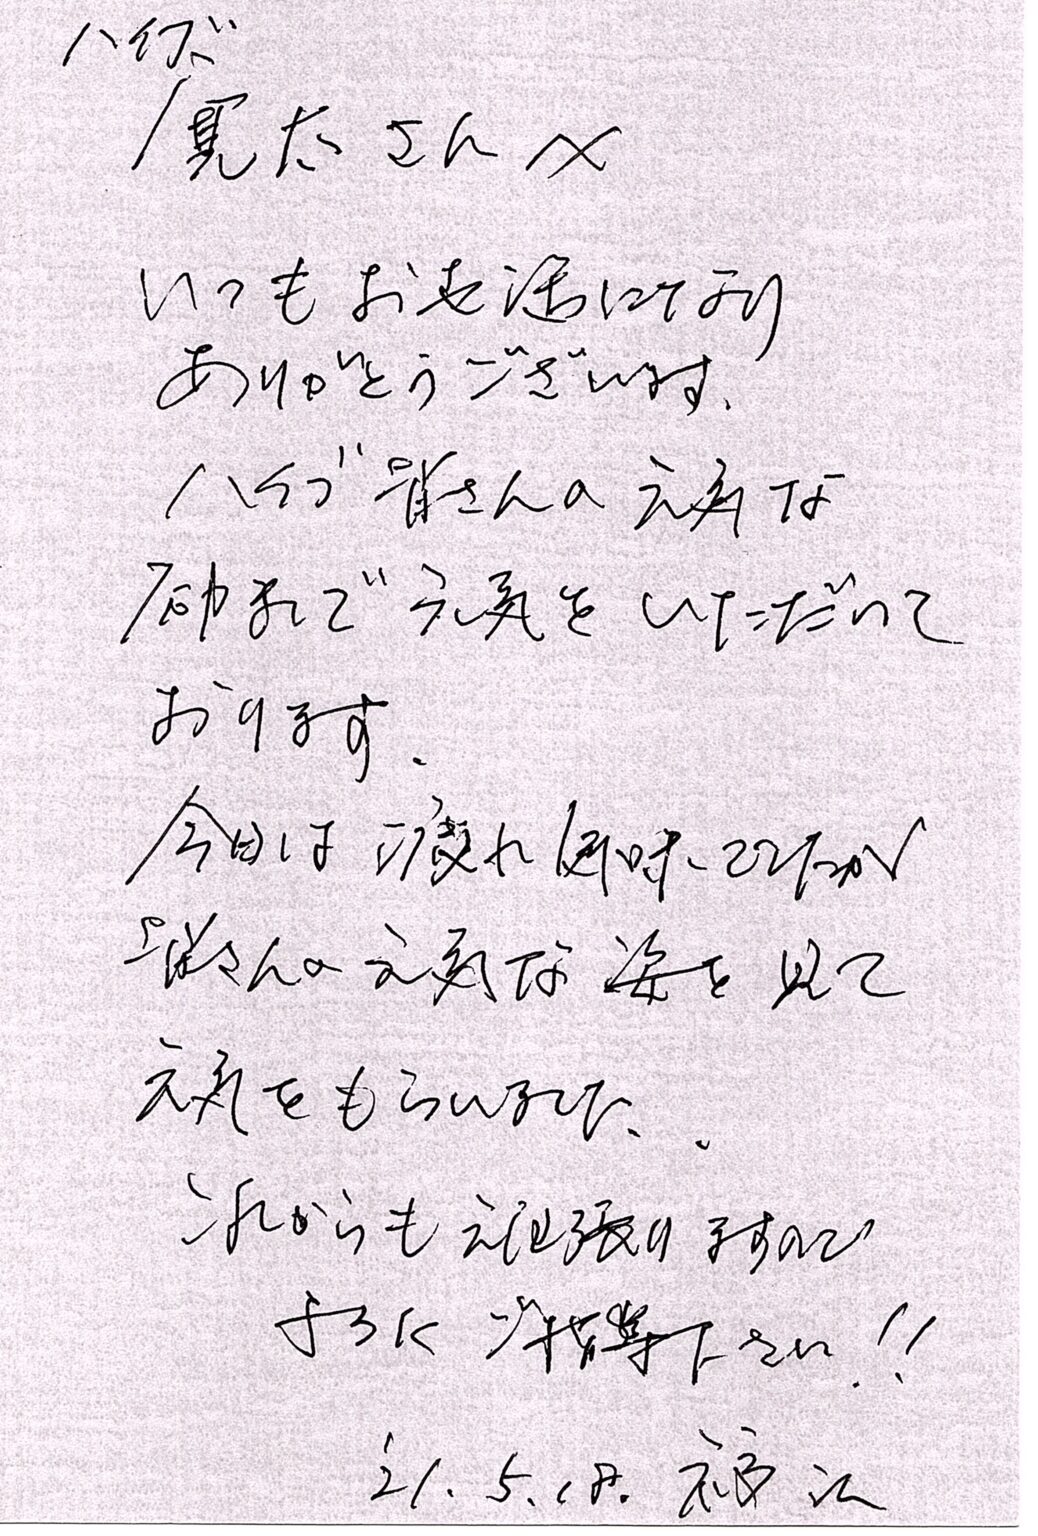 ハイブ
寛太さんへ
いつもお世話になり
ありがとうございます.
ハイブ皆さんの元気な
励ましで元気をいただいて
おります.
今日は疲れ気味でしたが
皆さんの元気な姿を見て
元気をもらいました.
これからも頑張りますので
よろしくご指導下さい!!
'21.5.18.